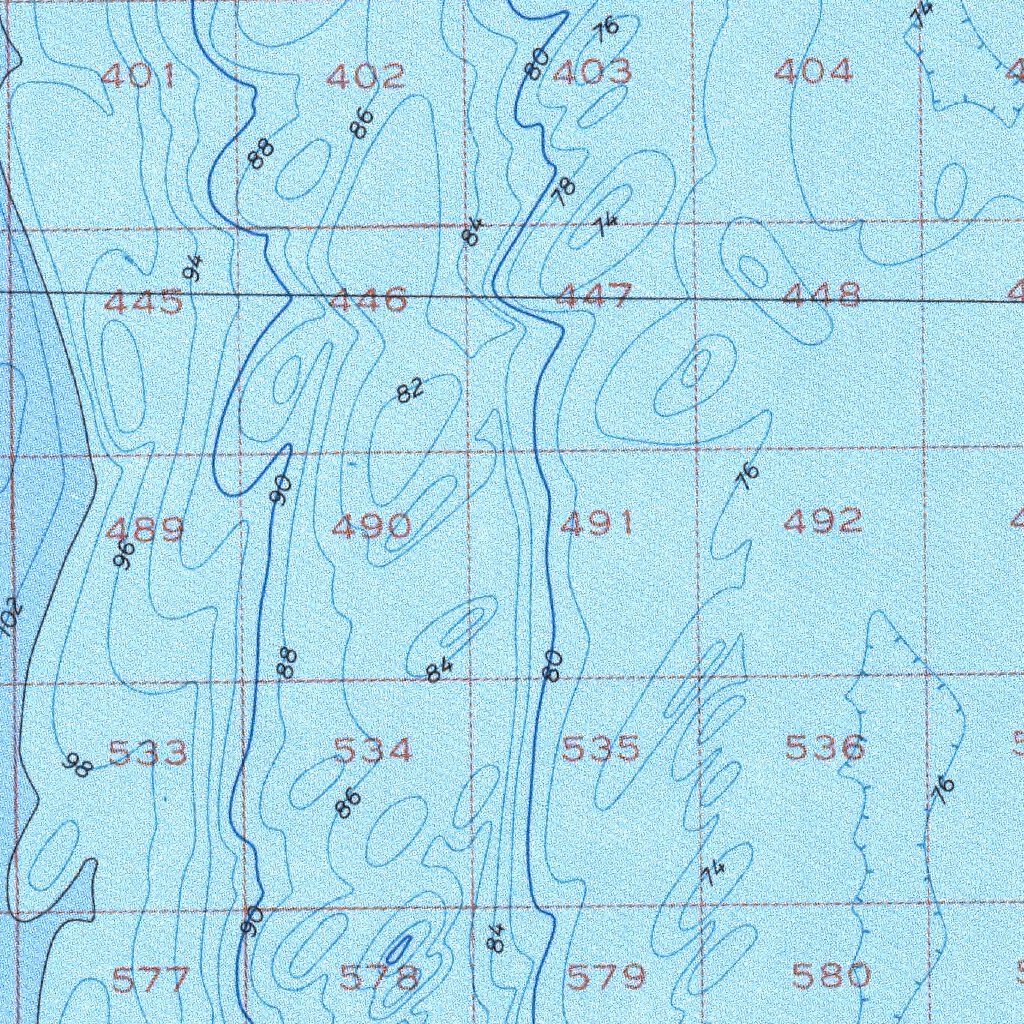 74
76
80
401
402
403
404
86
88
78
74
84
94
445
446
447
448
82
76
90
489
490
491
492
96
102
88
84
80
533
534
535
536
98
86
76
74
90
84
577
578
579
580